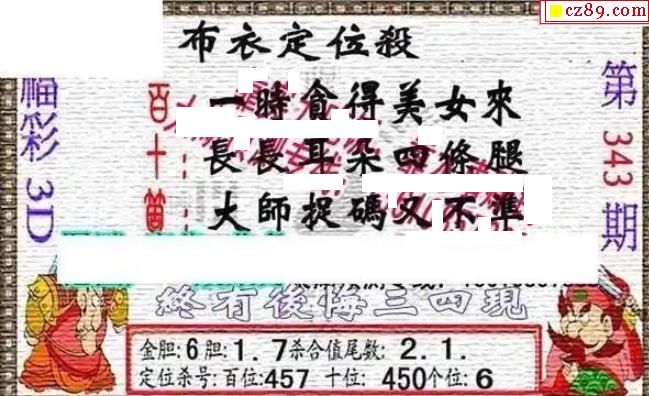 cz89.com
布衣定位殺
福彩3D
第343期
百十
一時貪得美女來
長長耳朵四條腿
大師捉碼又不準
終有後悔三四現
金胆:6胆:1.7杀合值尾数:2.1.
定位杀号:百位:457 十位:450个位:6